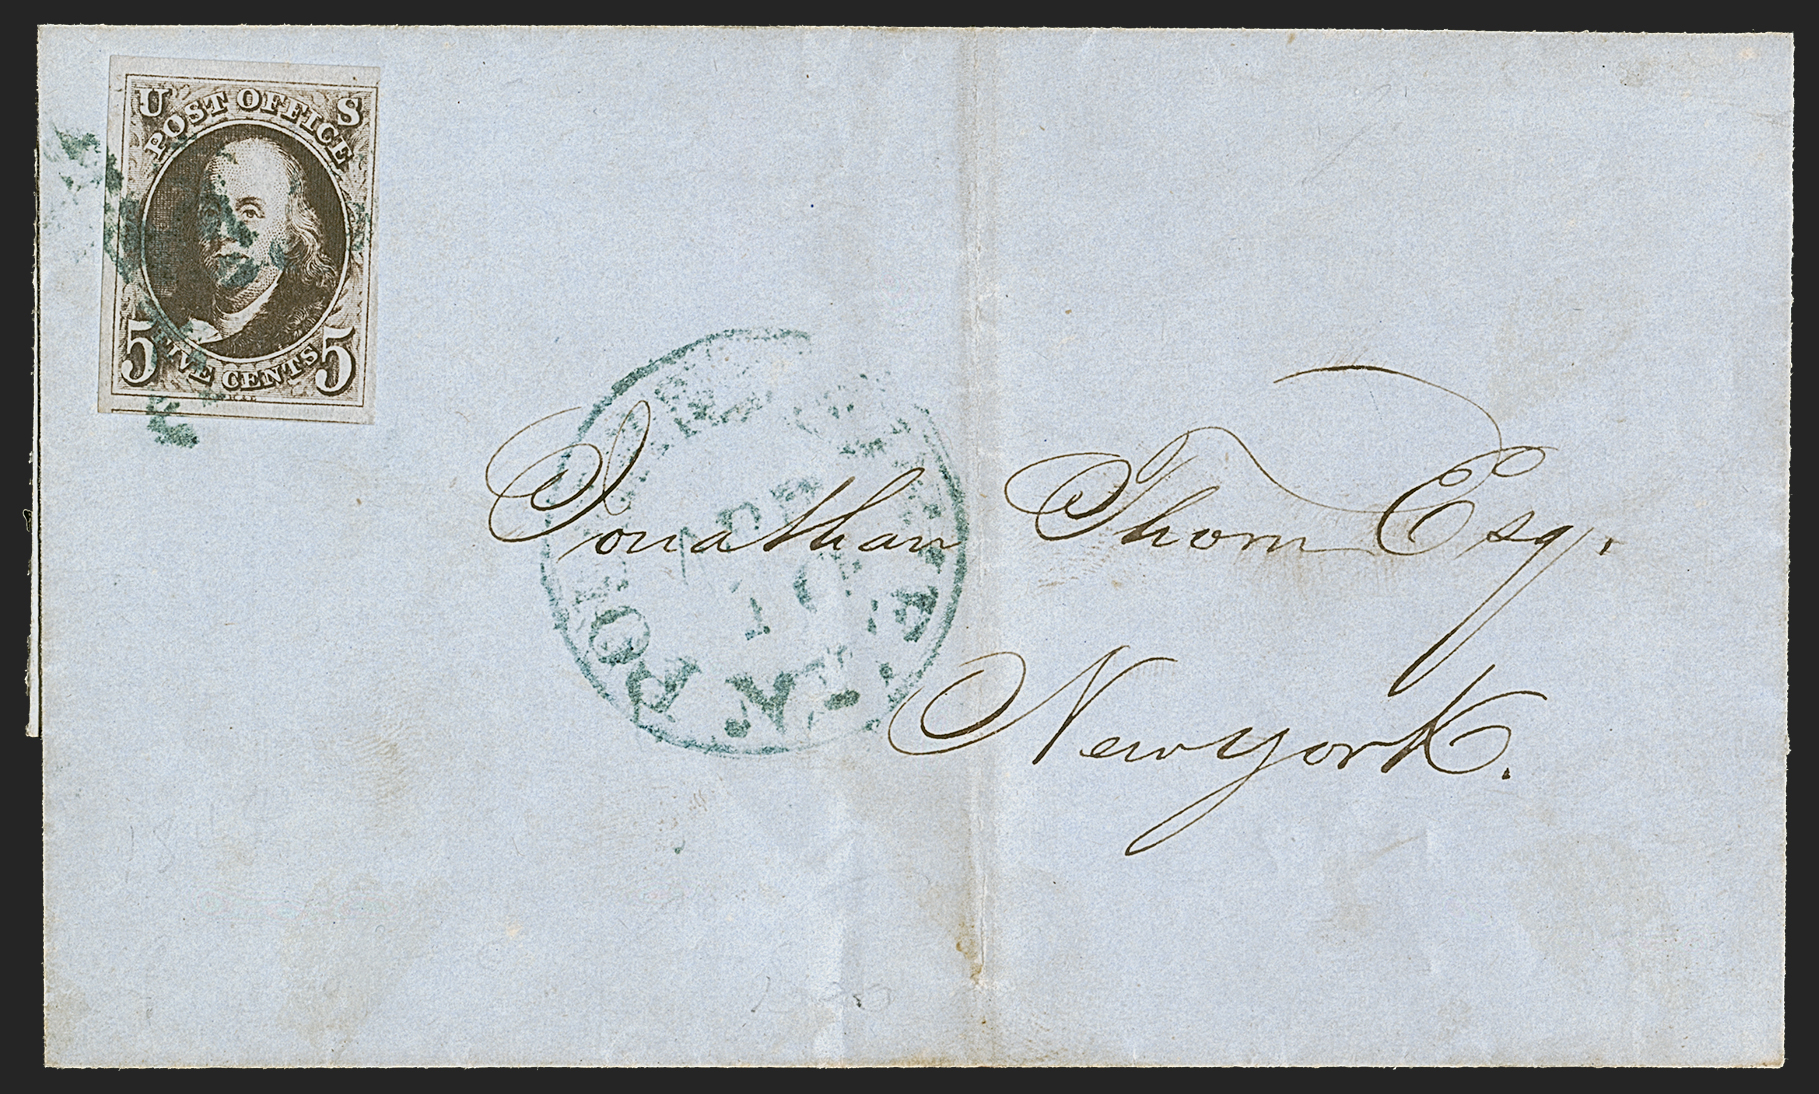 U S
POST OFFICE
5 FIVE CENTS 5
Jonathan Thorn Esq.
New york.
10
PO
N.